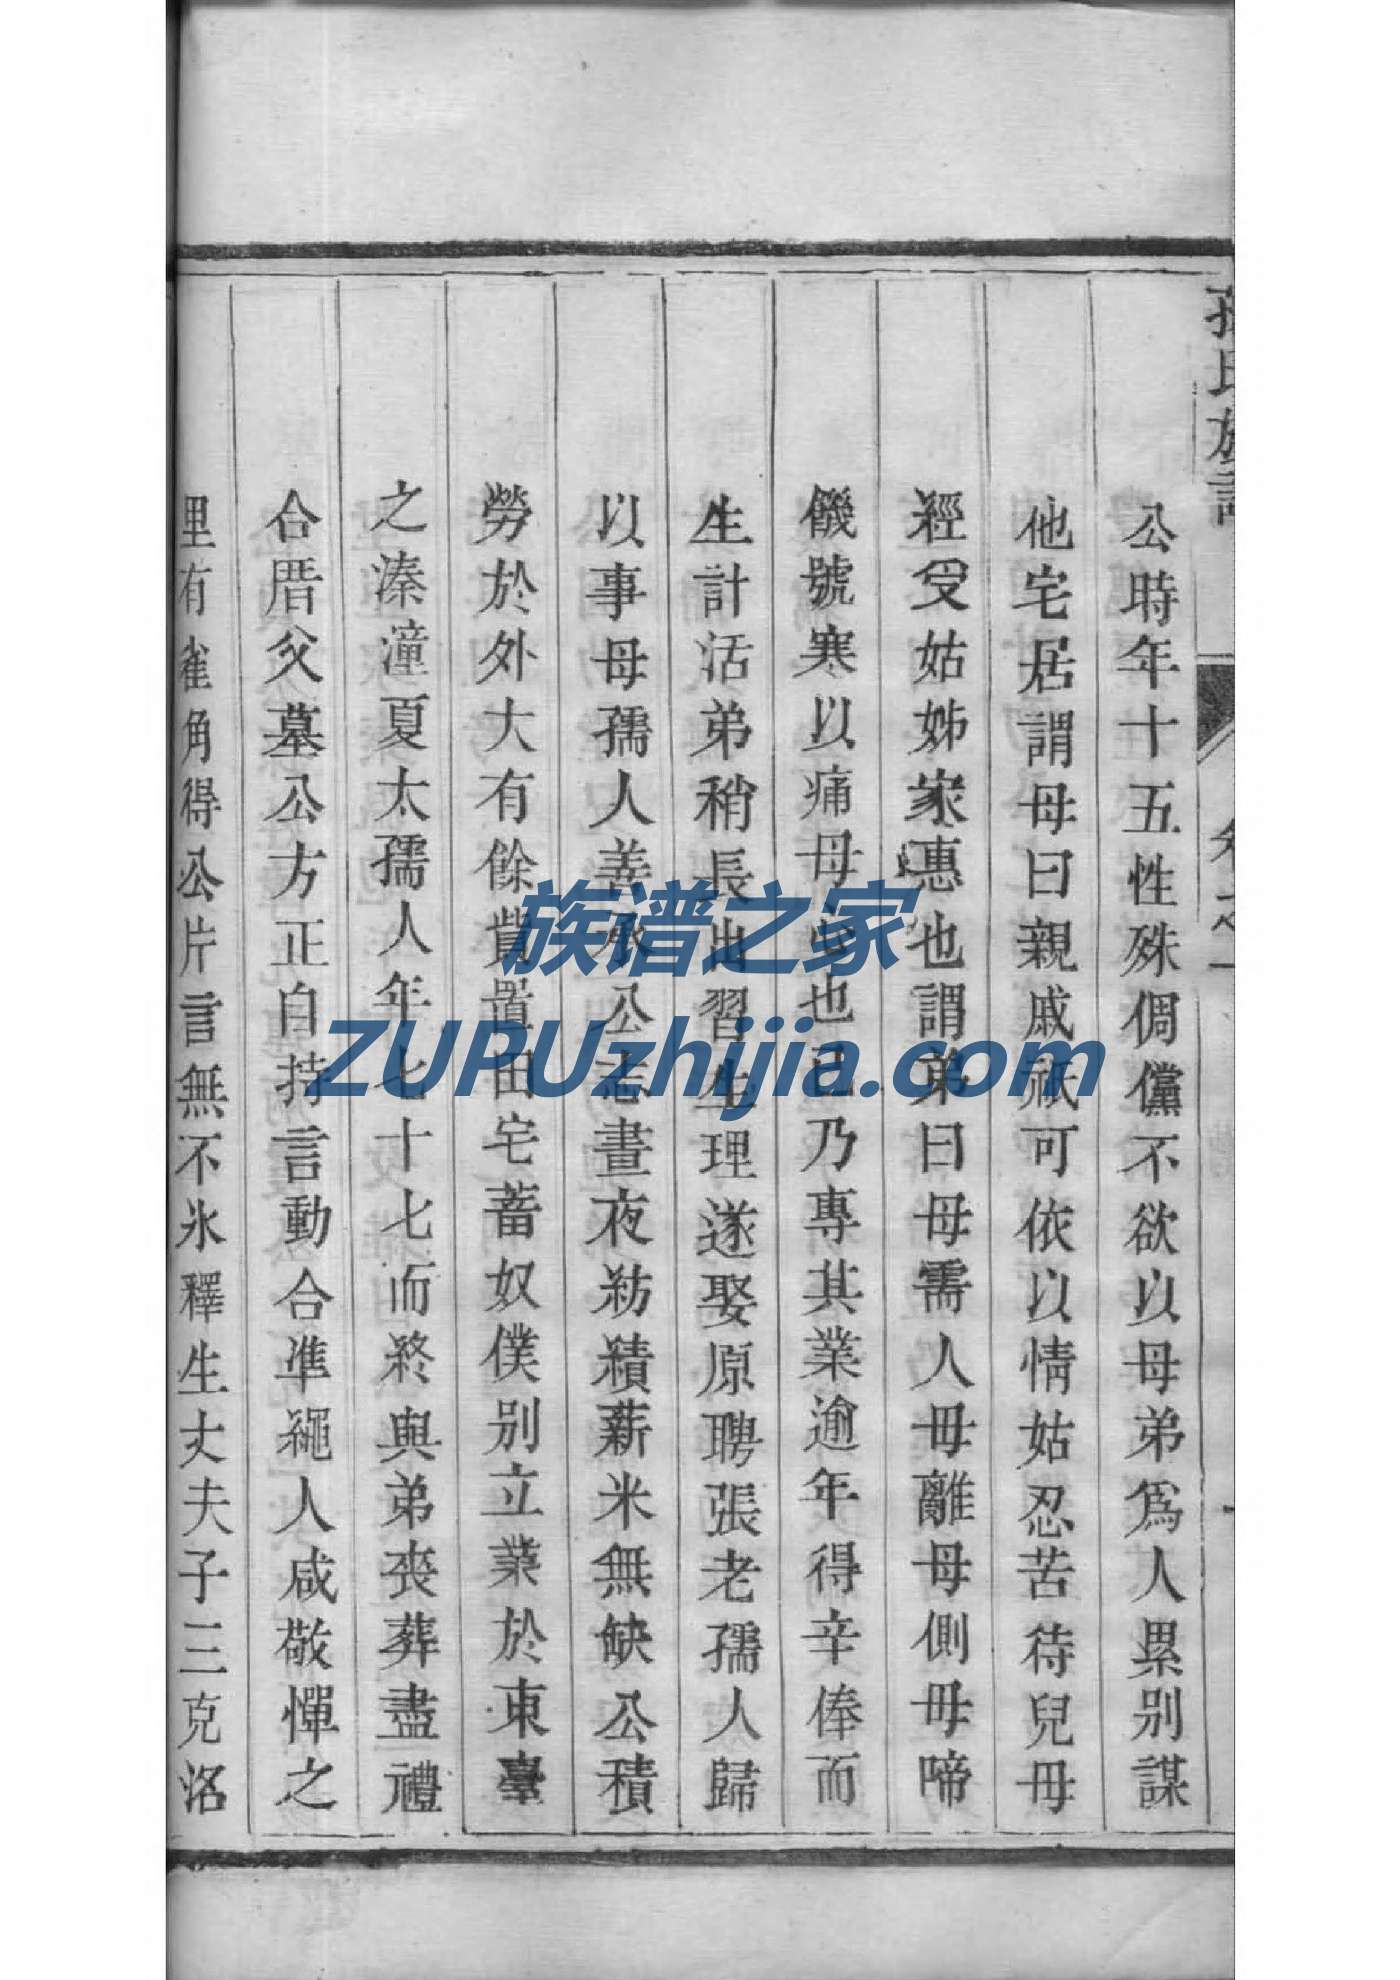 孫氏族譜
卷之一
公時年十五性殊倜儻不欲以母弟爲人累别謀
他宅居謂母曰親戚祇可依以情姑忍苦待兒毋
經受姑姊家惠也謂弟曰母需人毋離母側毋啼
饑號寒以痛母心也已乃專其業逾年得辛俸而
生計活弟稍長出習生理遂娶原聘張老孺人歸
以事母孺人善承公志晝夜紡績薪米無缺公積
勞於外大有餘貲置田宅蓄奴僕别立業於東臺
之溱潼夏太孺人年七十七而終與弟喪葬盡禮
合厝父墓公方正自持言動合準繩人咸敬憚之
里有雀角得公片言無不氷釋生丈夫子三克洺
族谱之家
ZUPUzhijia.com